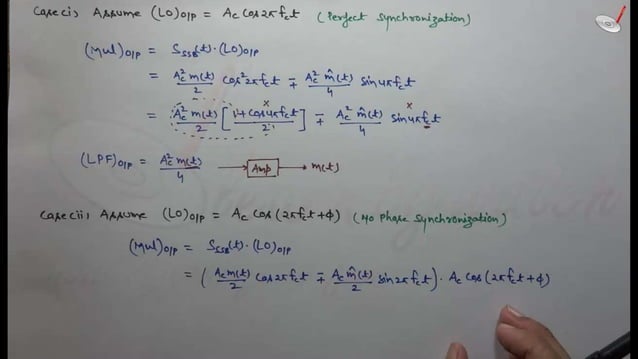 Case(i), Assume (LO)O/P = Ac Cos2πfct (Perfect Synchronization)
(Mul)O/P = SSSB(t)·(LO)O/P
= Ac² m(t)/2 Cos²2πfct ∓ Ac² m̂(t)/4 Sin4πfct
= Ac² m(t)/2 [1+Cos4πfct/2] ∓ Ac² m̂(t)/4 Sin4πfct
(LPF)O/P = Ac² m(t)/4 → Amp → m(t)
Case(ii), Assume (LO)O/P = Ac Cos(2πfct+ϕ) (No Phase Synchronization)
(Mul)O/P = SSSB(t)·(LO)O/P
= (Ac m(t)/2 Cos2πfct ∓ Ac m̂(t)/2 Sin2πfct)· Ac Cos(2πfct+ϕ)